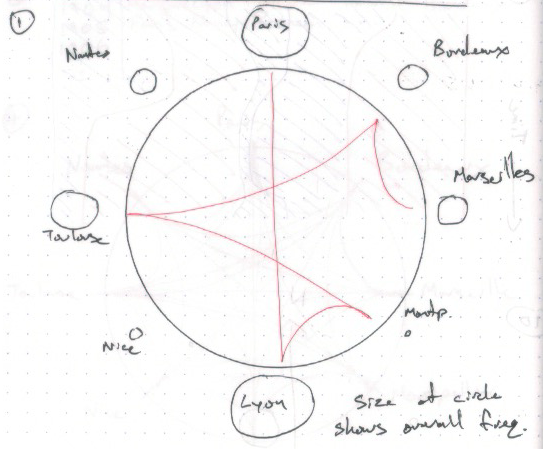 1
Paris
Nantes
Bordeaux
Marseilles
Toulouse
Montp.
Nice
Lyon
Size of circle
shows overall freq.